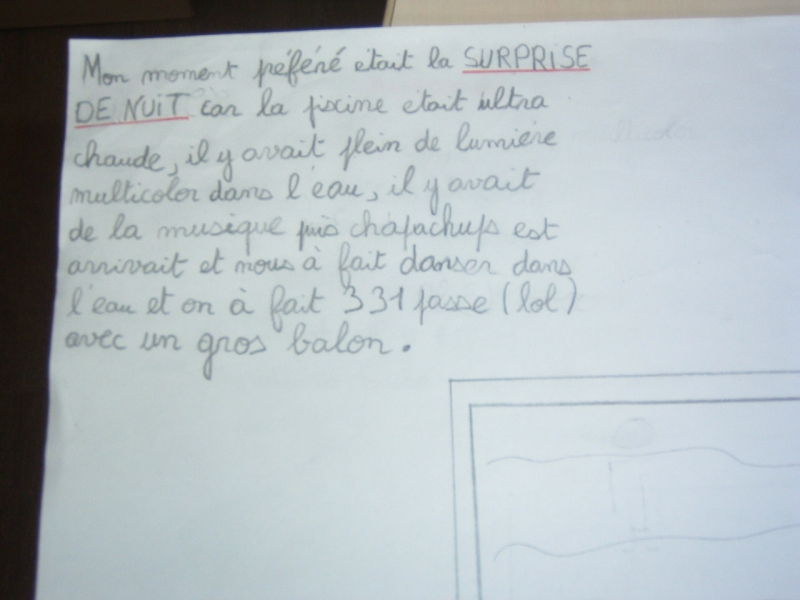 Mon moment préféré était la SURPRISE
DE NUIT car la piscine etait ultra
chaude, il y avait plein de lumière
multicolor dans l'eau, il y avait
de la musique puis chapachups est
arrivait et nous à fait danser dans
l'eau et on à fait 331 passe (lol)
avec un gros balon.